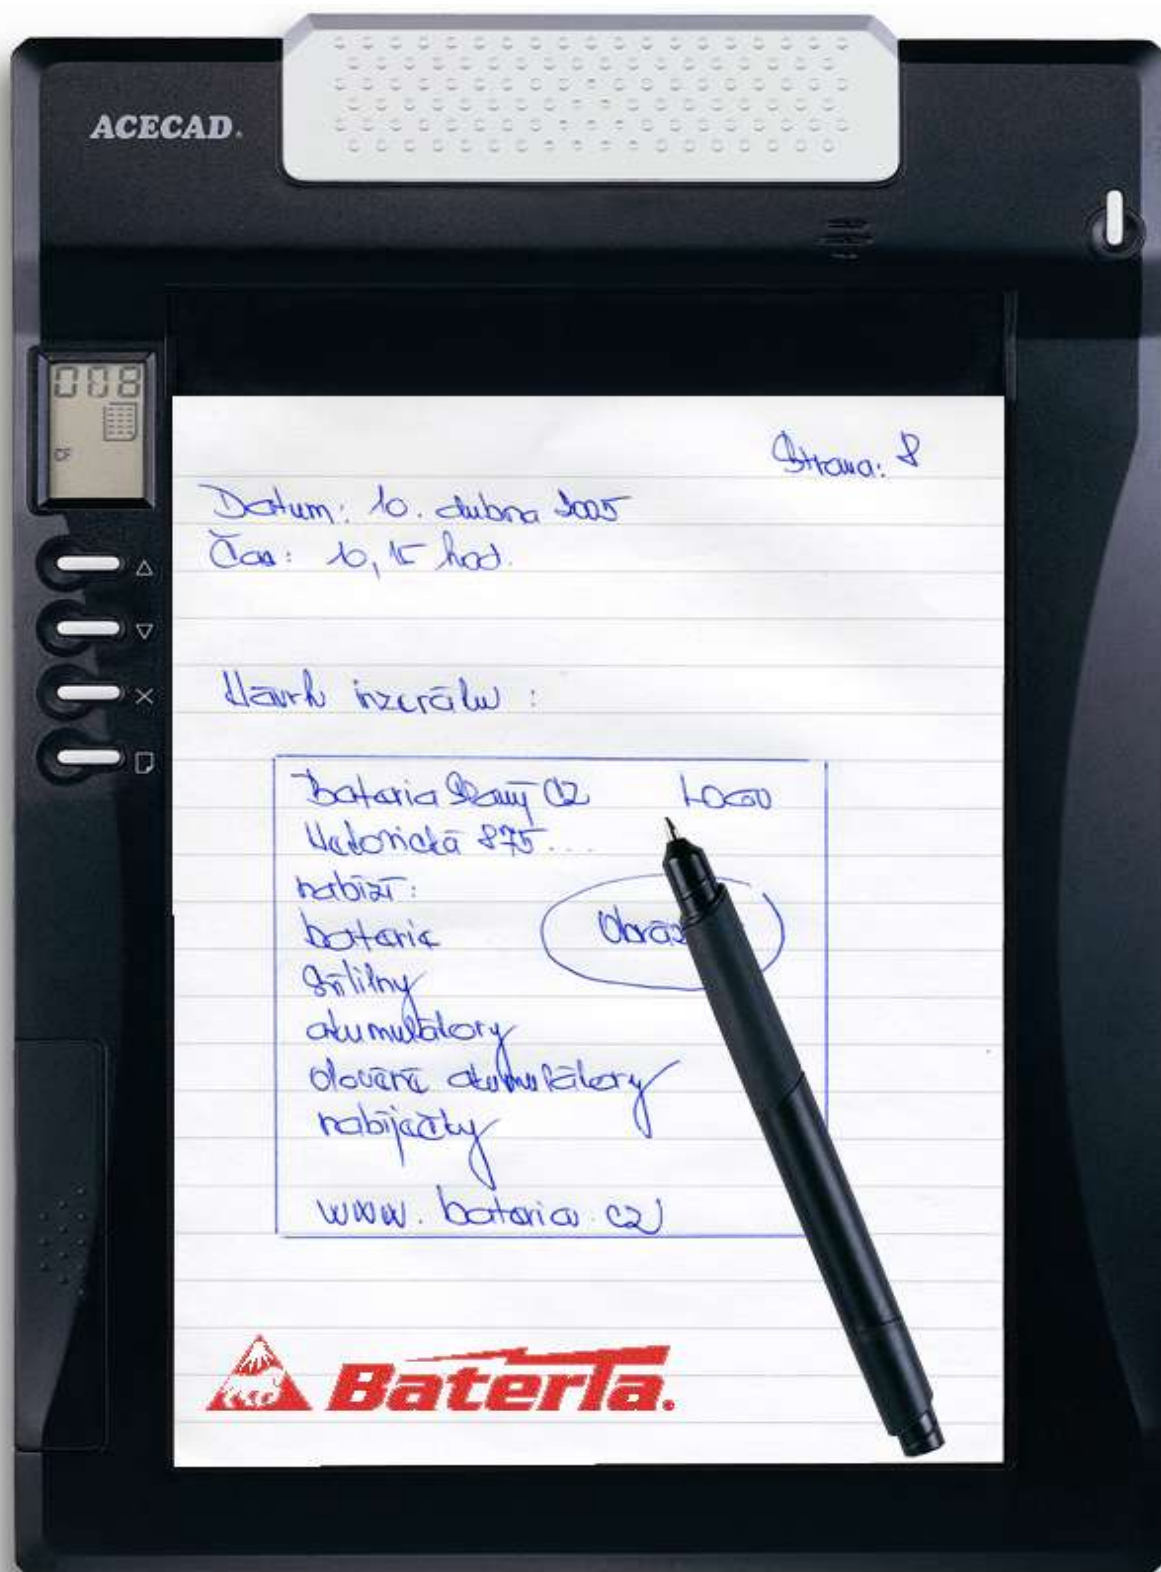 ACECAD.
008
CF
Strana: 8
Datum: 10. dubna 2005
Čas: 10,15 hod.
Návrh inzerátu :
Bateria Slaný CZ LOGO
Netovická 875...
nabízí:
baterie
obráz
svítilny
akumulátory
olověné akumulátory
nabíječky
www.bateria.cz
Baterია.